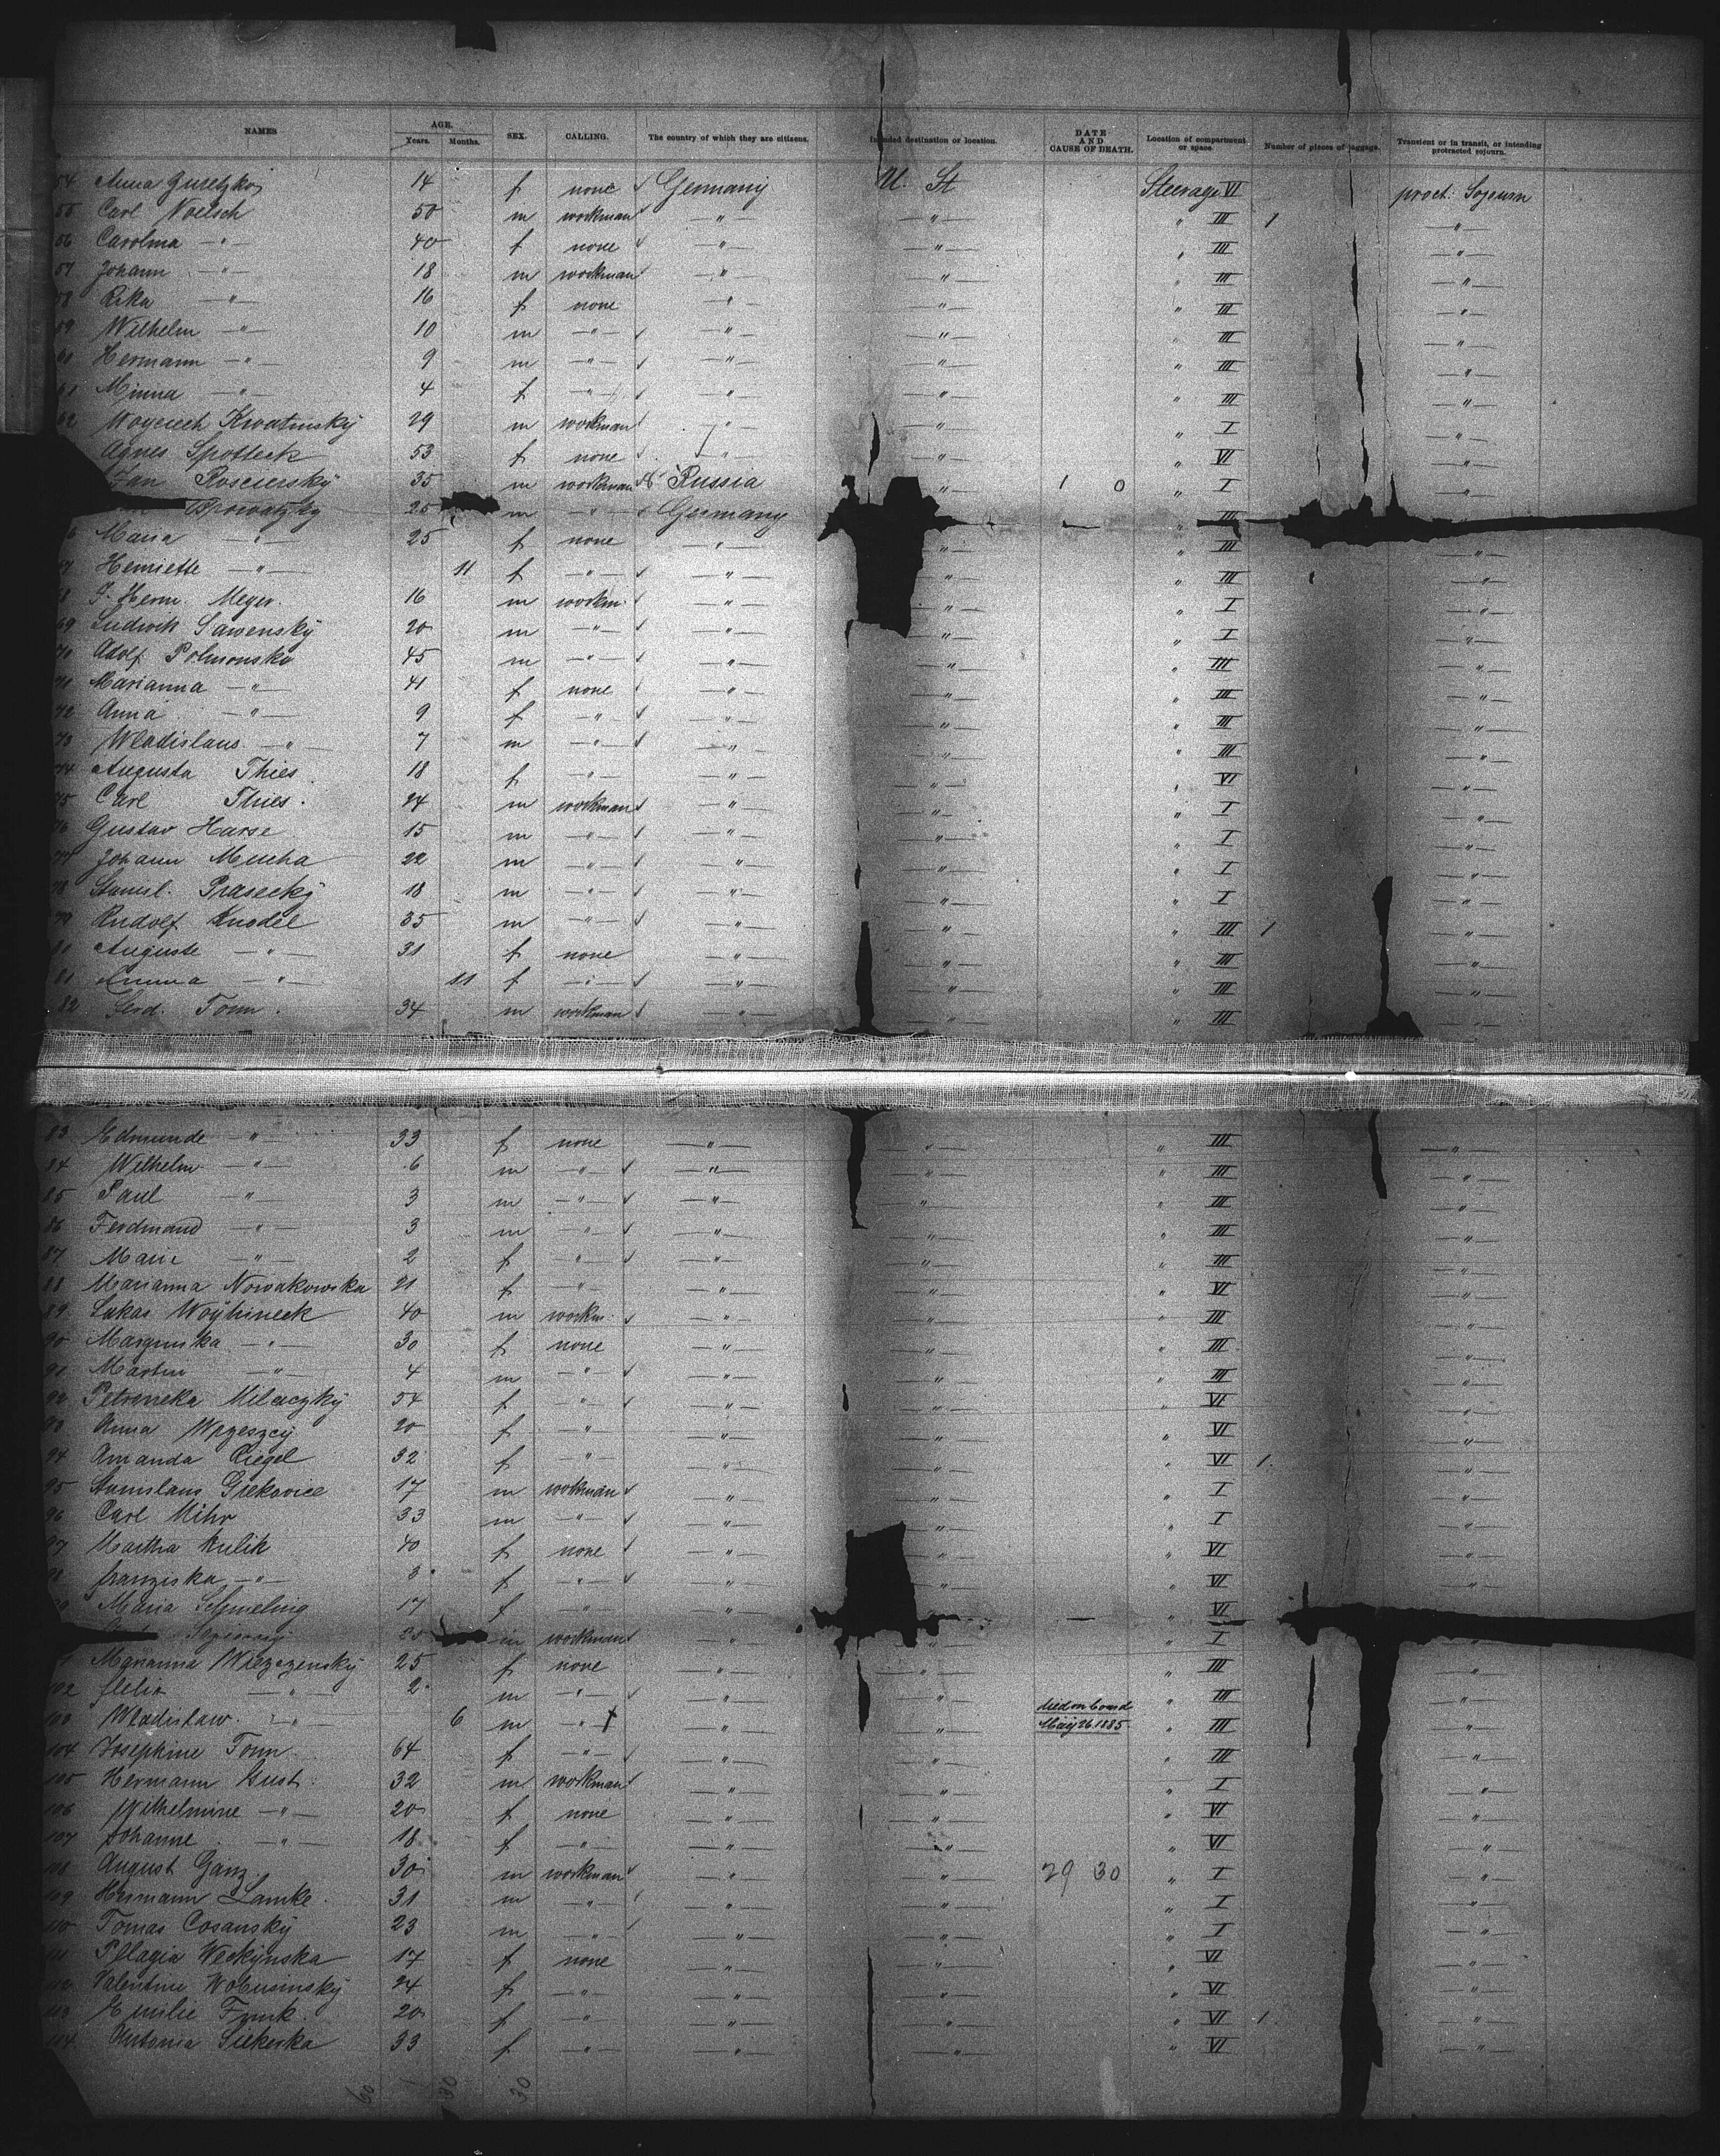 NAMES AGE. SEX. CALLING. The country of which they are citizens. Intended destination or location. DATE AND CAUSE OF DEATH. Location of compartment or space. Number of pieces of baggage. Transient or in transit, or intending protracted sojourn.
Years. Months.
54 Anna 14 f none Germany U. St Steerage VI proct. Sojourn
55 Carl Noetsch 50 m workman —"— "— " III 1 —"—
56 Carolina —"— 40 f none —"— "— " III —"—
57 Johann —"— 18 m workman —"— " " III —"—
58 Rika —"— 16 f none " " " III —"—
59 Wilhelm —"— 10 m —"— " "— " III —"—
60 Hermann —"— 9 m —"— —"— "— " III —"—
61 Minna —"— 4 f —"— " "— " III —"—
62 Woyciech Kwatinsky 29 m workman —"— "— " I —"—
Agnes Spotteck 53 f none " " " VI —"—
Jan Rosciersky 35 m workman Russia "— 1 0 " I —"—
25 m —"— Germany III
Maria —"— 25 f none —"— "— " III —"—
Henriette —"— 11 f —"— —"— "— " III —"—
Herm. Meyer. 16 m workm. —"— "— " I —"—
69 Ludwik Sawensky 20 m —"— —"— "— " I —"—
70 Adolf Polmonske 45 m —"— —"— "— " III —"—
71 Marianna —"— 41 f none —"— "— " III —"—
72 Anna —"— 9 f —"— —"— "— " III —"—
73 Wladislaus —"— 7 m —"— —"— "— " III —"—
74 Augusta Thies 18 f —"— —"— "— " VI —"—
75 Carl Thies. 24 m workman —"— "— " I —"—
76 Gustav Harse 15 m —"— —"— "— " I —"—
77 Johann Mucha 22 m —"— —"— "— " I —"—
78 Stanisl. Prasecky 18 m —"— —"— "— " I —"—
79 Rudolf Knodel 35 m —"— —"— "— " III 1 —"—
80 Auguste —"— 31 f none —"— "— " III —"—
81 Emma —"— 11 f —"— —"— "— " III —"—
82 Tonn. 34 m workman —"— "— III —"—
83 Edmunde —"— 33 f none —"— " " III —"—
84 Wilhelm —"— 6 m —"— —"— "— " III —"—
85 Paul —"— 3 m —"— —"— "— " III —"—
86 Ferdinand —"— 3 m " —"— "— " III —"—
87 Marie —"— 2 f " —"— "— " III —"—
88 Marianna Nowakowska 21 f " —"— "— " VI —"—
89 Lukas 40 m workm. —"— "— " III —"—
90 —"— 30 f none —"— "— " III —"—
91 Martin —"— 4 m —"— —"— "— " III —"—
92 54 f —"— —"— "— " VI —"—
93 Anna Wrzeszcy 20 f —"— —"— "— " VI —"—
94 Amanda Ciegel 32 f —"— —"— "— " VI 1. —"—
95 Stanislaus Grekovice 17 m workman —"— "— " I —"—
96 Carl Mihr 33 m —"— —"— "— " I —"—
97 Martha Kulik 40 f none —"— "— " VI —"—
franziska —"— 3 f —"— —"— "— " VI —"—
Maria Schmeling 17 f —"— —"— " VI
25 m workman —"— " " I "
Marianna 25 f none —"— "— " III —"—
102 —"— 2 m —"— —"— "— " III —"—
103 Wladislaw. —"— 6 m —"— † —"— "— died on board May 26. 1885 " III —"—
104 Josephine Tonn 64 f —"— —"— "— " III —"—
105 Hermann Gust. 32 m workman —"— "— " I —"—
106 Wilhelmine —"— 20 f none —"— "— " VI —"—
107 Johanne —"— 18 f —"— —"— "— " VI —"—
108 August Ganz. 30 m workman —"— "— 29 30 " I —"—
109 Hermann Lamke. 31 m —"— —"— "— " I —"—
110 Tomas Cosansky 23 m —"— —"— "— " I —"—
111 Pelagia Weckynska 17 f none —"— "— " VI —"—
112 Valentine 24 f —"— —"— "— " VI —"—
113 Emilie Funk. 20 f —"— —"— "— " VI 1. —"—
114 Antonia Siekerka 33 f —"— —"— "— " VI —"—
60 30 30